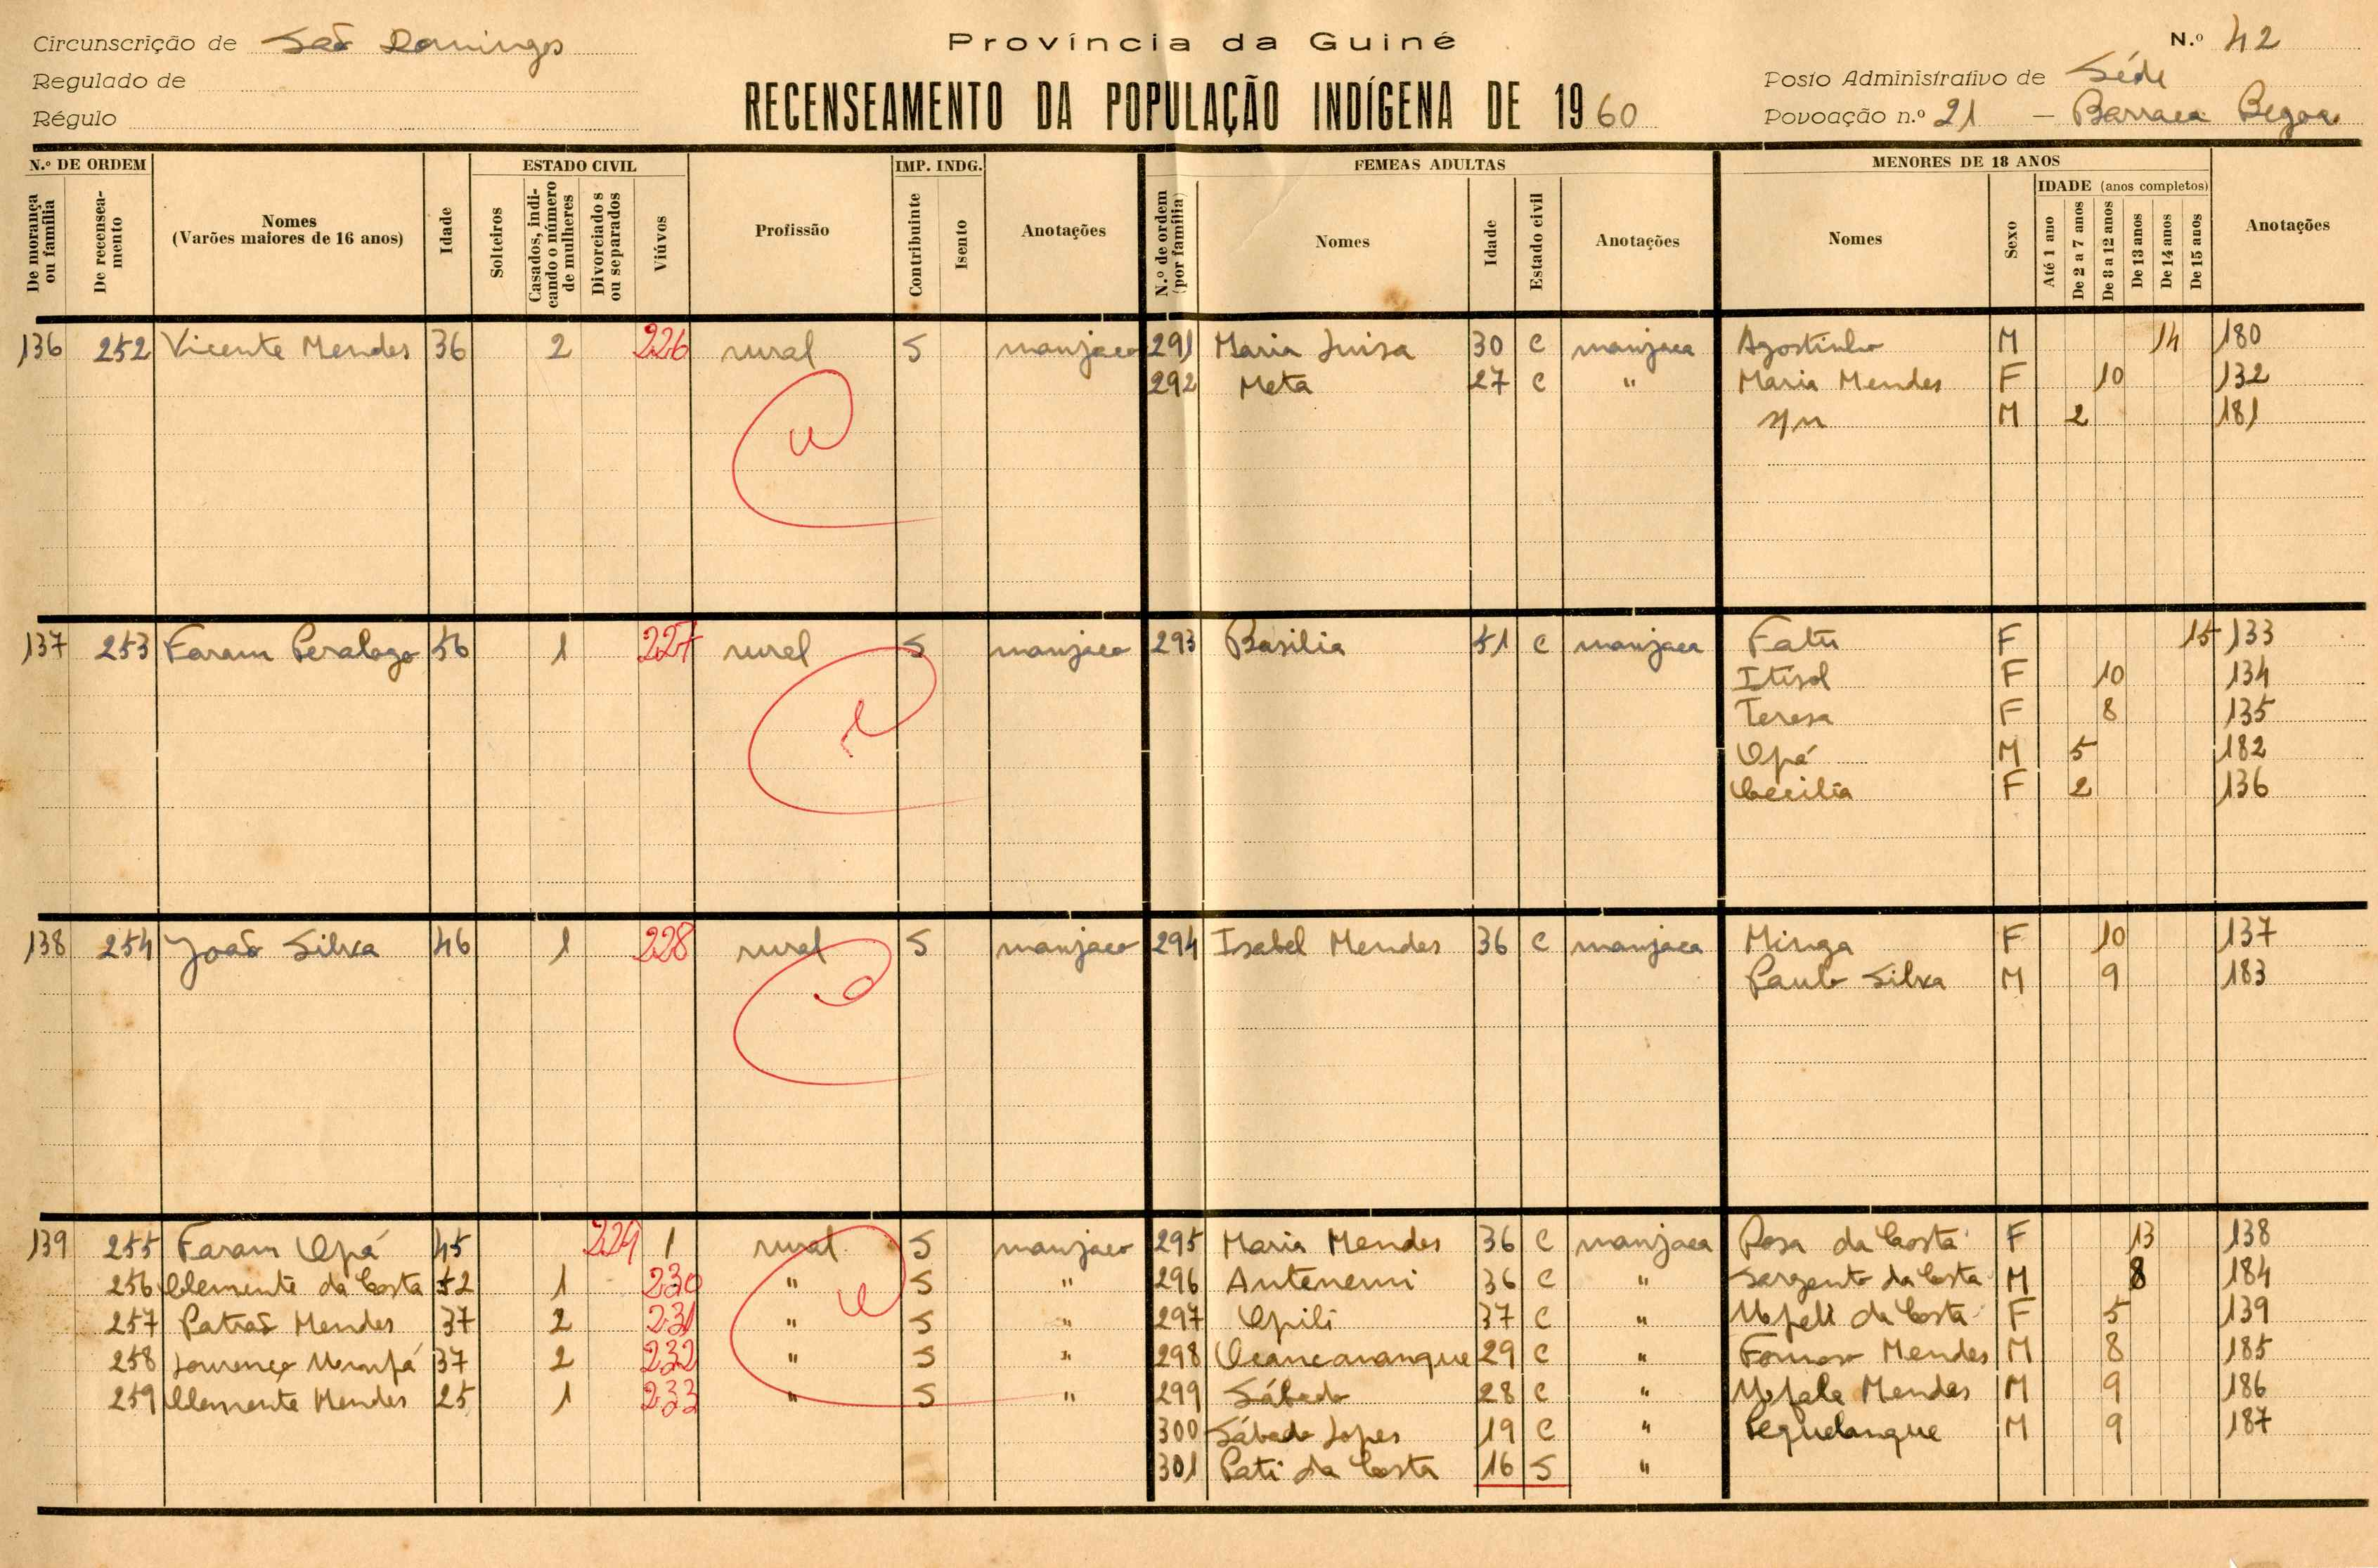 Circunscrição de São Domingos
Regulado de
Régulo
Província da Guiné
RECENSEAMENTO DA POPULAÇÃO INDÍGENA DE 1960
N.º 42
Posto Administrativo de Séde
Povoação n.º 21 — Barraca
N.º DE ORDEM
De morança ou família
De recenseamento
Nomes
(Varões maiores de 16 anos)
Idade
ESTADO CIVIL
Solteiros
Casados, indicando o número de mulheres
Divorciados ou separados
Viúvos
Profissão
IMP. INDG.
Contribuinte
Isento
Anotações
FEMEAS ADULTAS
N.º de ordem (por família)
Nomes
Idade
Estado civil
Anotações
MENORES DE 18 ANOS
Nomes
Sexo
IDADE (anos completos)
Até 1 ano
De 2 a 7 anos
De 8 a 12 anos
De 13 anos
De 14 anos
De 15 anos
Anotações
136 252 Vicente Mendes 36 2 226 rural S manjaco 291 Maria Luisa 30 C manjaca Agostinho M 14 180
292 Meta 27 C " Maria Mendes F 10 132
M 2 181
137 253 Faram 56 1 227 rural S manjaco 293 Basilia 51 C manjaca Fatu F 15 133
Itisol F 10 134
Teresa F 8 135
Opá M 5 182
Cecilia F 2 136
138 254 João Silva 46 1 228 rural S manjaco 294 Isabel Mendes 36 C manjaca Minga F 10 137
Paulo Silva M 9 183
139 255 Faram Opá 45 229 1 rural S manjaco 295 Maria Mendes 36 C manjaca Rosa da Costa F 13 138
256 Clemente da Costa 52 1 230 " S " 296 Antenemi 36 C " Sargento da Costa M 8 184
257 Patrão Mendes 37 2 231 " S " 297 Opili 37 C " da Costa F 5 139
258 Lourenço 37 2 232 " S " 298 29 C " Mendes M 8 185
259 Clemente Mendes 25 1 233 " S " 299 Sábado 28 C " Mendes M 9 186
300 Sábado Lopes 19 C " Pequelangue M 9 187
301 Pati da Costa 16 S "